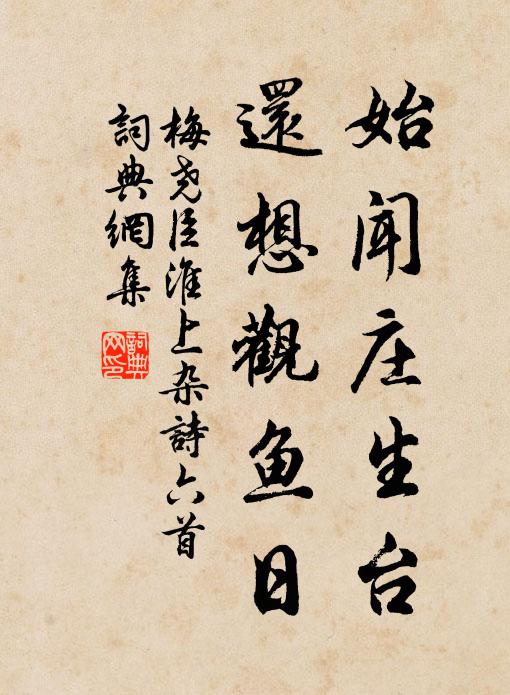 始闻庄生台
還想觀鱼日
梅尧臣淮上杂詩六首
詞典網集
詞典网印